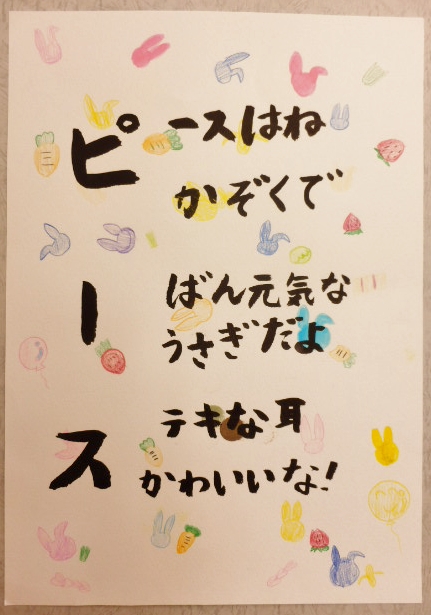 ピースはね
かぞくで
ーばん元気な
うさぎだよ
ステキな耳
かわいいな!